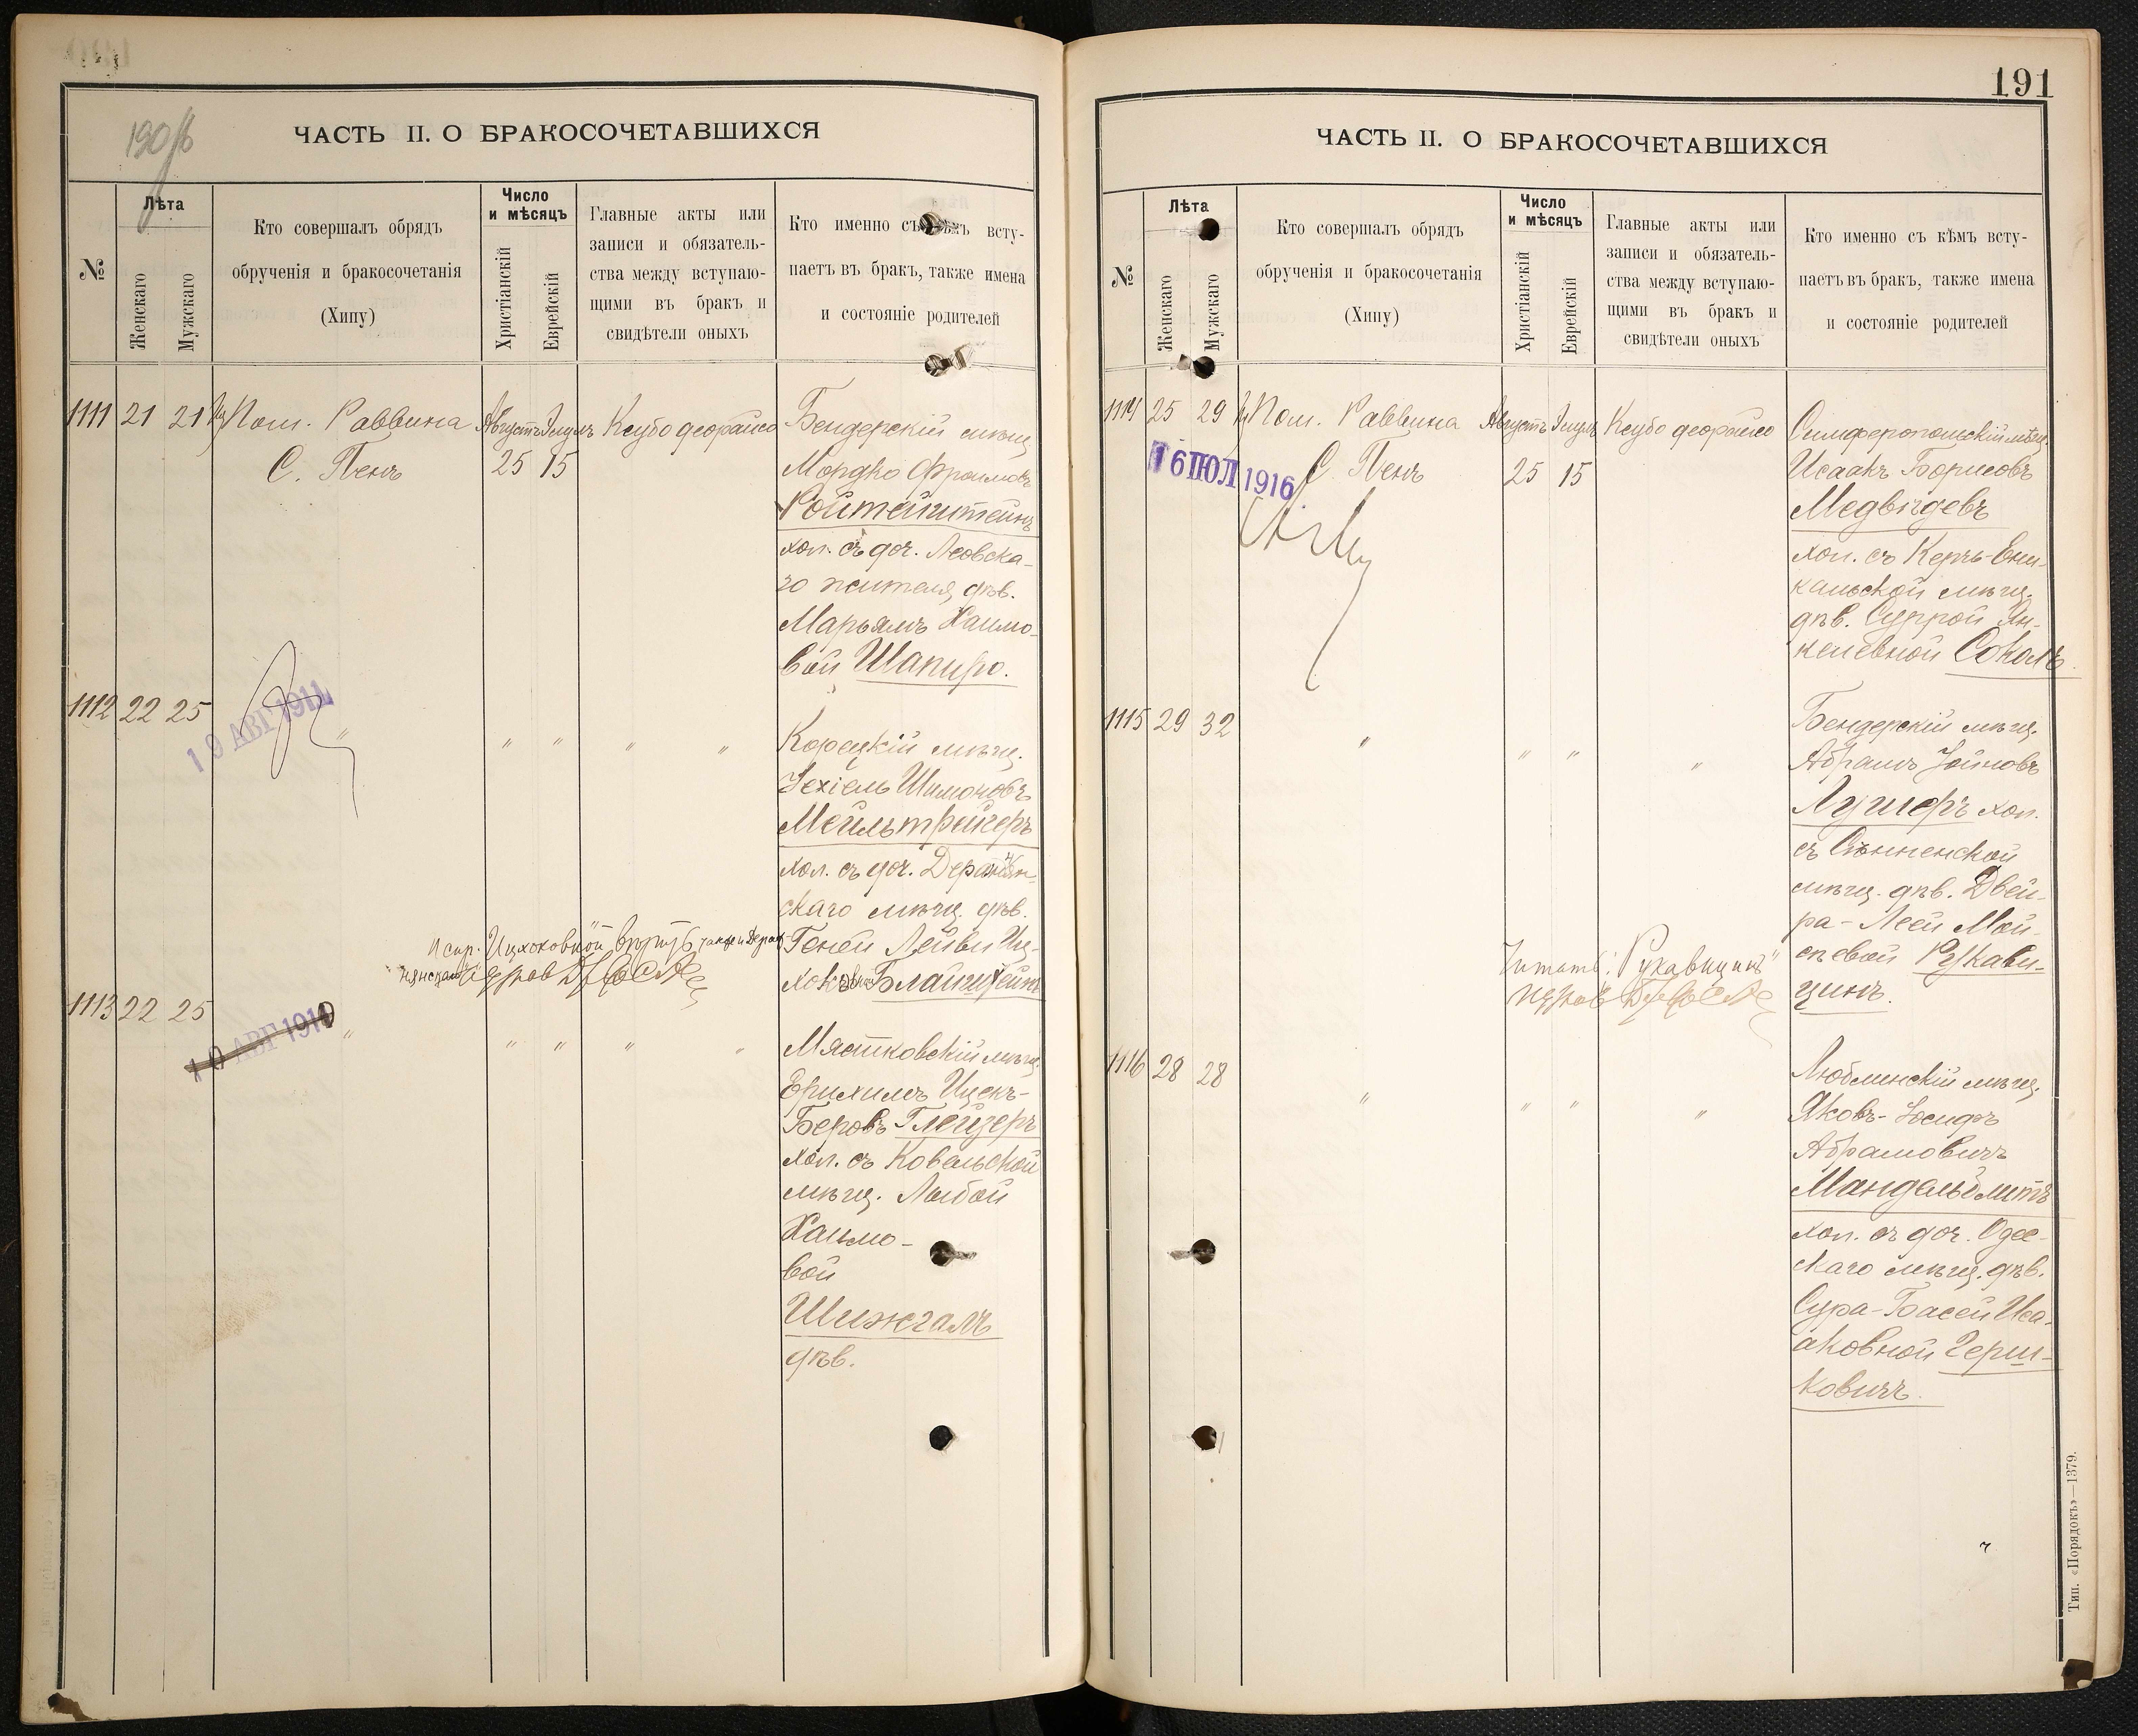 190
ЧАСТЬ II. О БРАКОСОЧЕТАВШИХСЯ
№
Лѣта
Женскаго
Мужскаго
Кто совершалъ обрядъ
обрученія и бракосочетанія
(Хипу)
Число
и мѣсяцъ
Христіанскій
Еврейскій
Главные акты или
записи и обязатель-
ства между вступаю-
щими въ бракъ и
свидѣтели оныхъ
Кто именно съ кѣмъ всту-
паетъ въ бракъ, также имена
и состояніе родителей
1111 21 21 Пом. Раввина Августъ Элулъ Ксубо деорайсо Бендерскій мѣщ.
С. Пенъ 25 15 Мордко Фроимовъ
Ройтенштейнъ
хол. съ доч. Леовска-
го жителя, дѣв.
Марьямъ Хаимо-
вой Шапиро.
1112 22 25 " " " " " Корецкій мѣщ.
19 АВГ 1911
Іехіель Шимоновъ
Мейльтрейгеръ
хол. съ доч. Деражнян-
скаго мѣщ. дѣв.
Испр. "Ицхоковной" вѣрить, также и "Дераж-
нянскаго"
Геней Лейви Иц-
хоковной Блайштейнъ
1113 22 25 " " " " " Мястковскій мѣщ.
10 АВГ 1910
Ерихимъ Ицекъ-
Беровъ Глейзеръ
хол. съ Ковельской
мѣщ. Любой
Хаимо-
вой
Шижгалъ
дѣв.
191
ЧАСТЬ II. О БРАКОСОЧЕТАВШИХСЯ
№
Лѣта
Женскаго
Мужскаго
Кто совершалъ обрядъ
обрученія и бракосочетанія
(Хипу)
Число
и мѣсяцъ
Христіанскій
Еврейскій
Главные акты или
записи и обязатель-
ства между вступаю-
щими въ бракъ и
свидѣтели оныхъ
Кто именно съ кѣмъ всту-
паетъ въ бракъ, также имена
и состояніе родителей
1114 25 29 Пом. Раввина Августъ Элулъ Ксубо деорайсо Симферопольскій мѣщ.
16 ІЮЛ 1916
С. Пенъ 25 15 Исаакъ Борисовъ
Медвѣдевъ
хол. съ Керчь-Ени-
кальской мѣщ.
дѣв. Суррой Ян-
келевной Соколъ.
1115 29 32 " " " " Бендерскій мѣщ.
Абрамъ Іойновъ
Лушеръ хол.
съ Сѣнненской
мѣщ. дѣв. Двей-
ра-Леей Мой-
сѣевой Рукави-
цинъ.
Читать: "Рукавицинъ"
1116 28 28 " " " " Люблинскій мѣщ.
Яковъ-Іосифъ
Абрамовичъ
Мандельблитъ
хол. съ доч. Одес-
скаго мѣщ. дѣв.
Сура-Басей Иса-
аковной Герш-
ковичъ.
Тип. «Порядокъ»—1379.